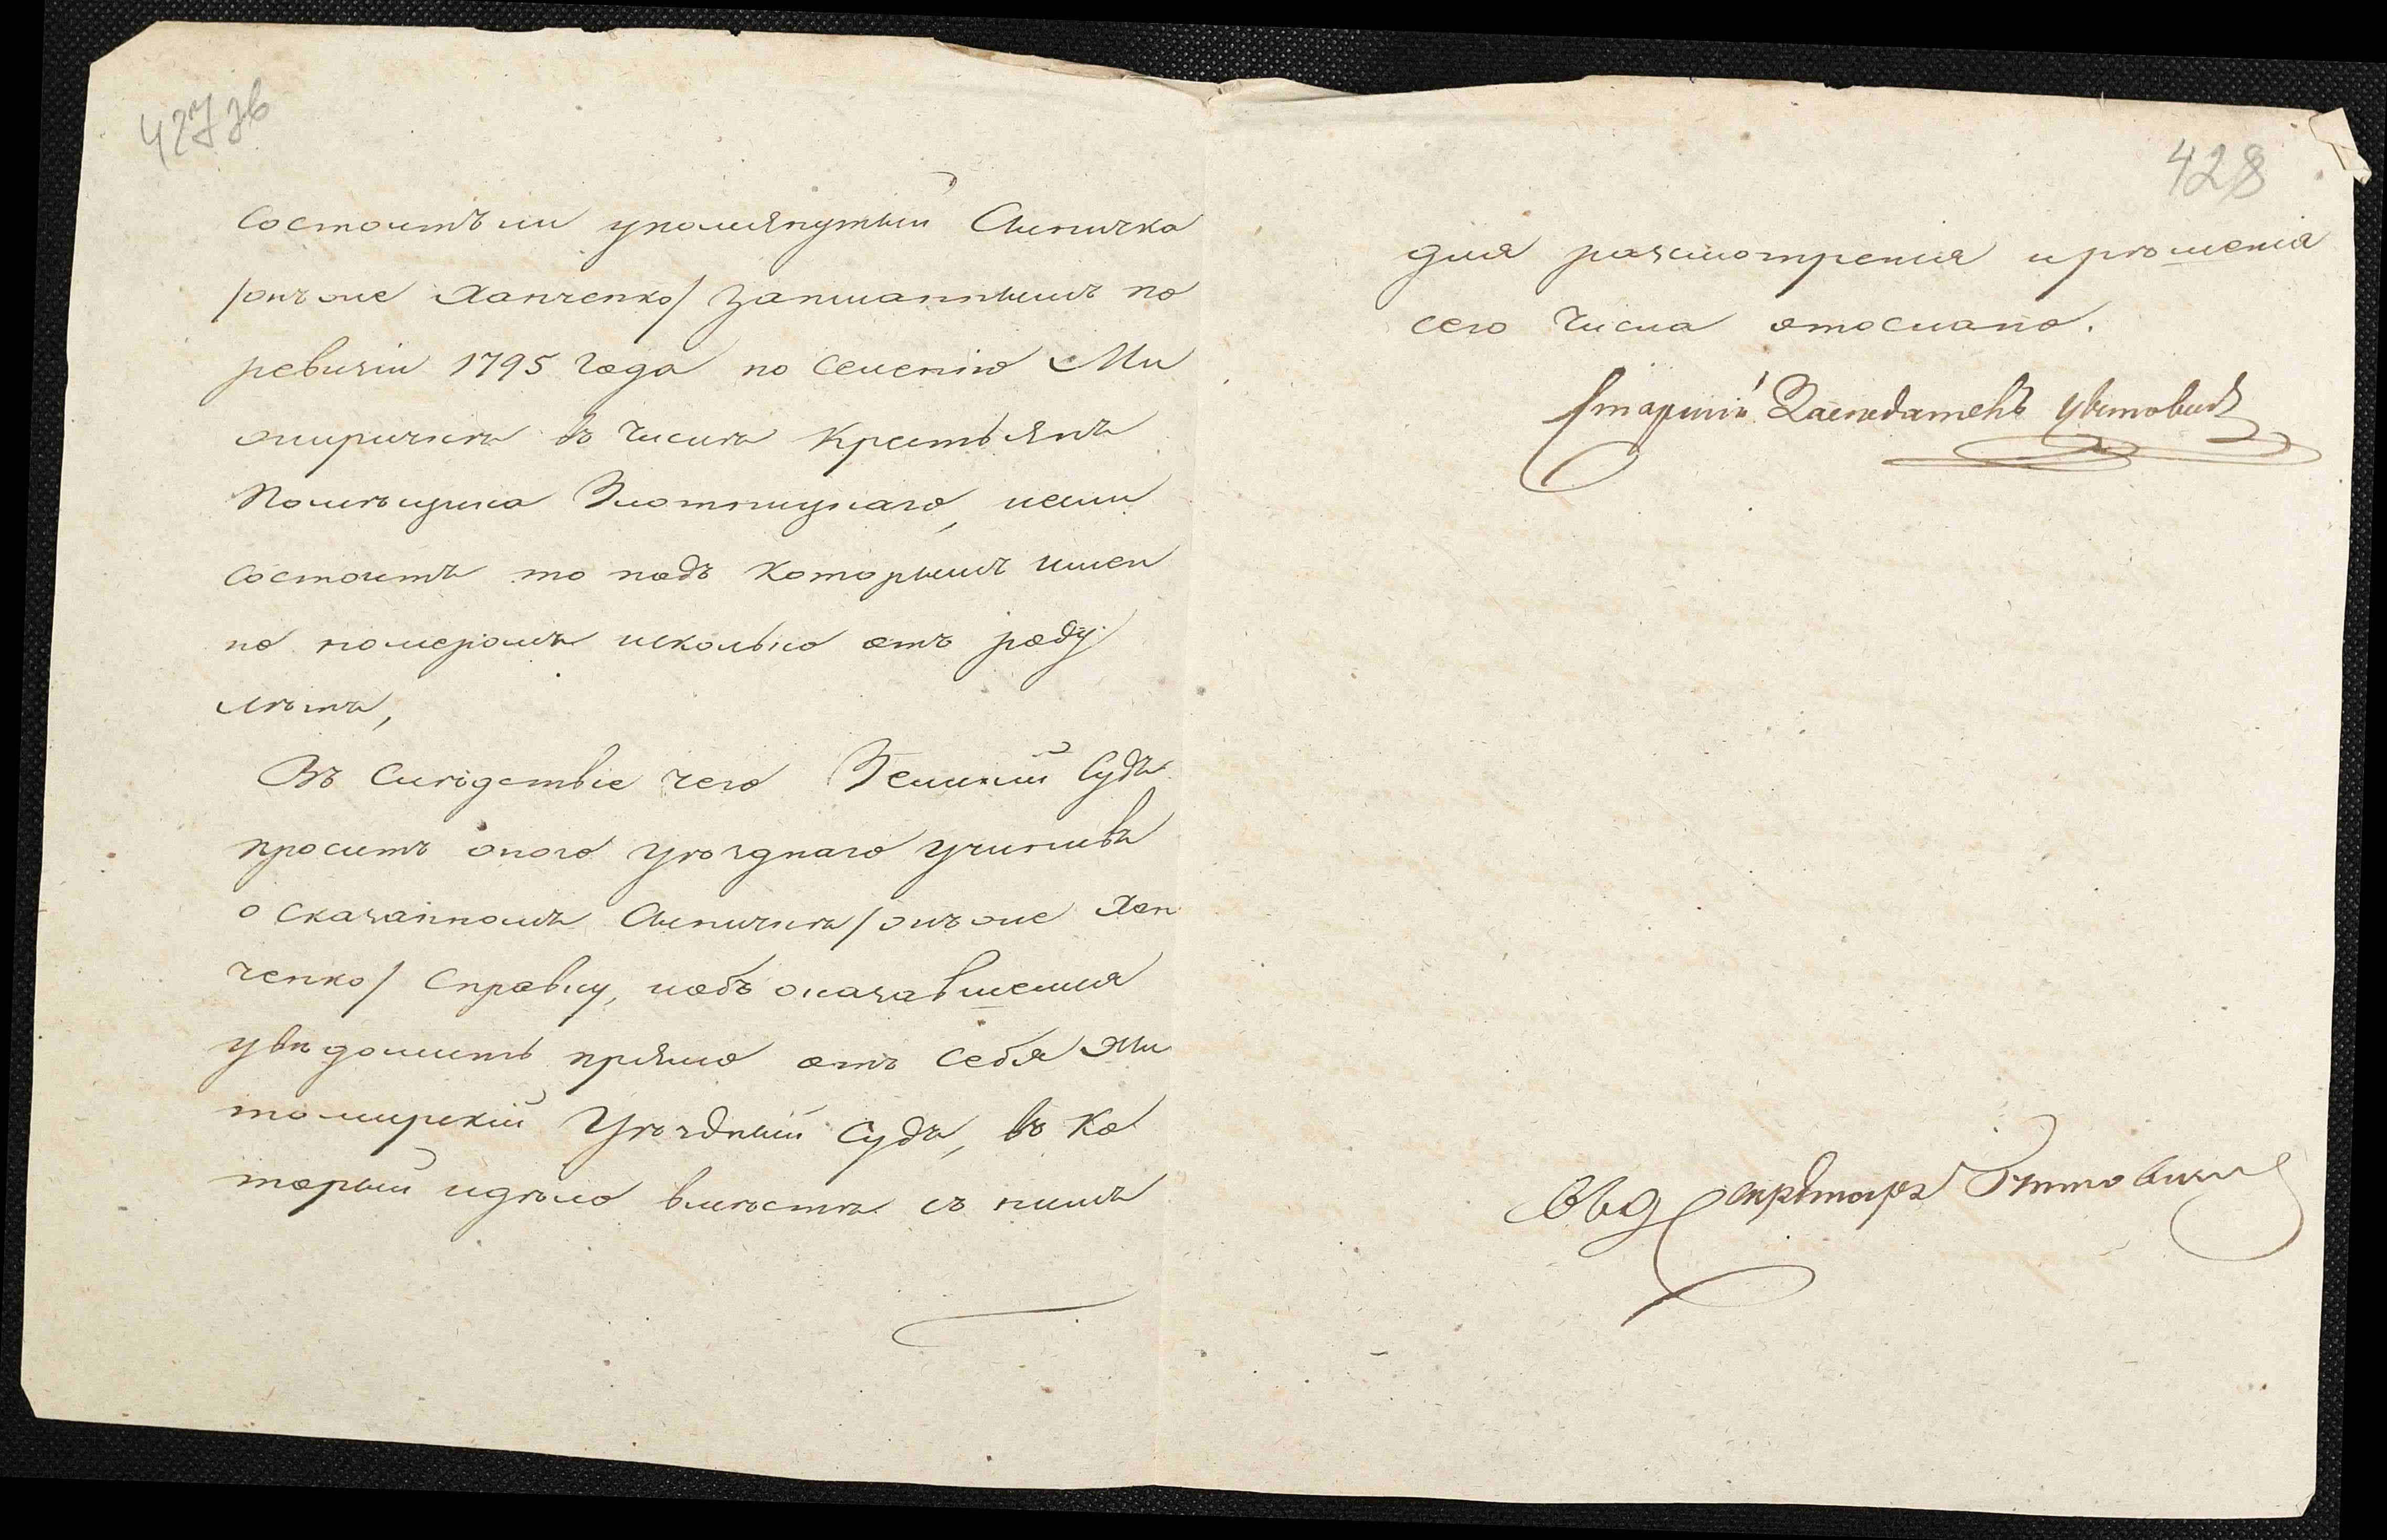 427 зв
состоитъ ли упомянутый Липичка
/онъ же Ханченко/ записаннымъ по
ревизіи 1795 года по селенію Ми
жиричкѣ въ числѣ крестьянъ
Помѣщика Злотницкаго, и если
состоитъ то подъ которымъ имен
но номеромъ и сколько отъ роду
лѣтъ,
Въ слѣдствіе чего Земский Судъ
проситъ оного уѣзднаго учинивъ
о сказанномъ Липичкѣ /онъ же Хан
ченко/ справку, и объ оказавшемся
увѣдомить прямо отъ себя Жи
томирскій Уѣздный Судъ, въ ко
торый и дѣло вместѣ съ нимъ
428
для разсмотренія и рѣшенія
сего числа отослано.
Старшій Заседатель
Секретарь